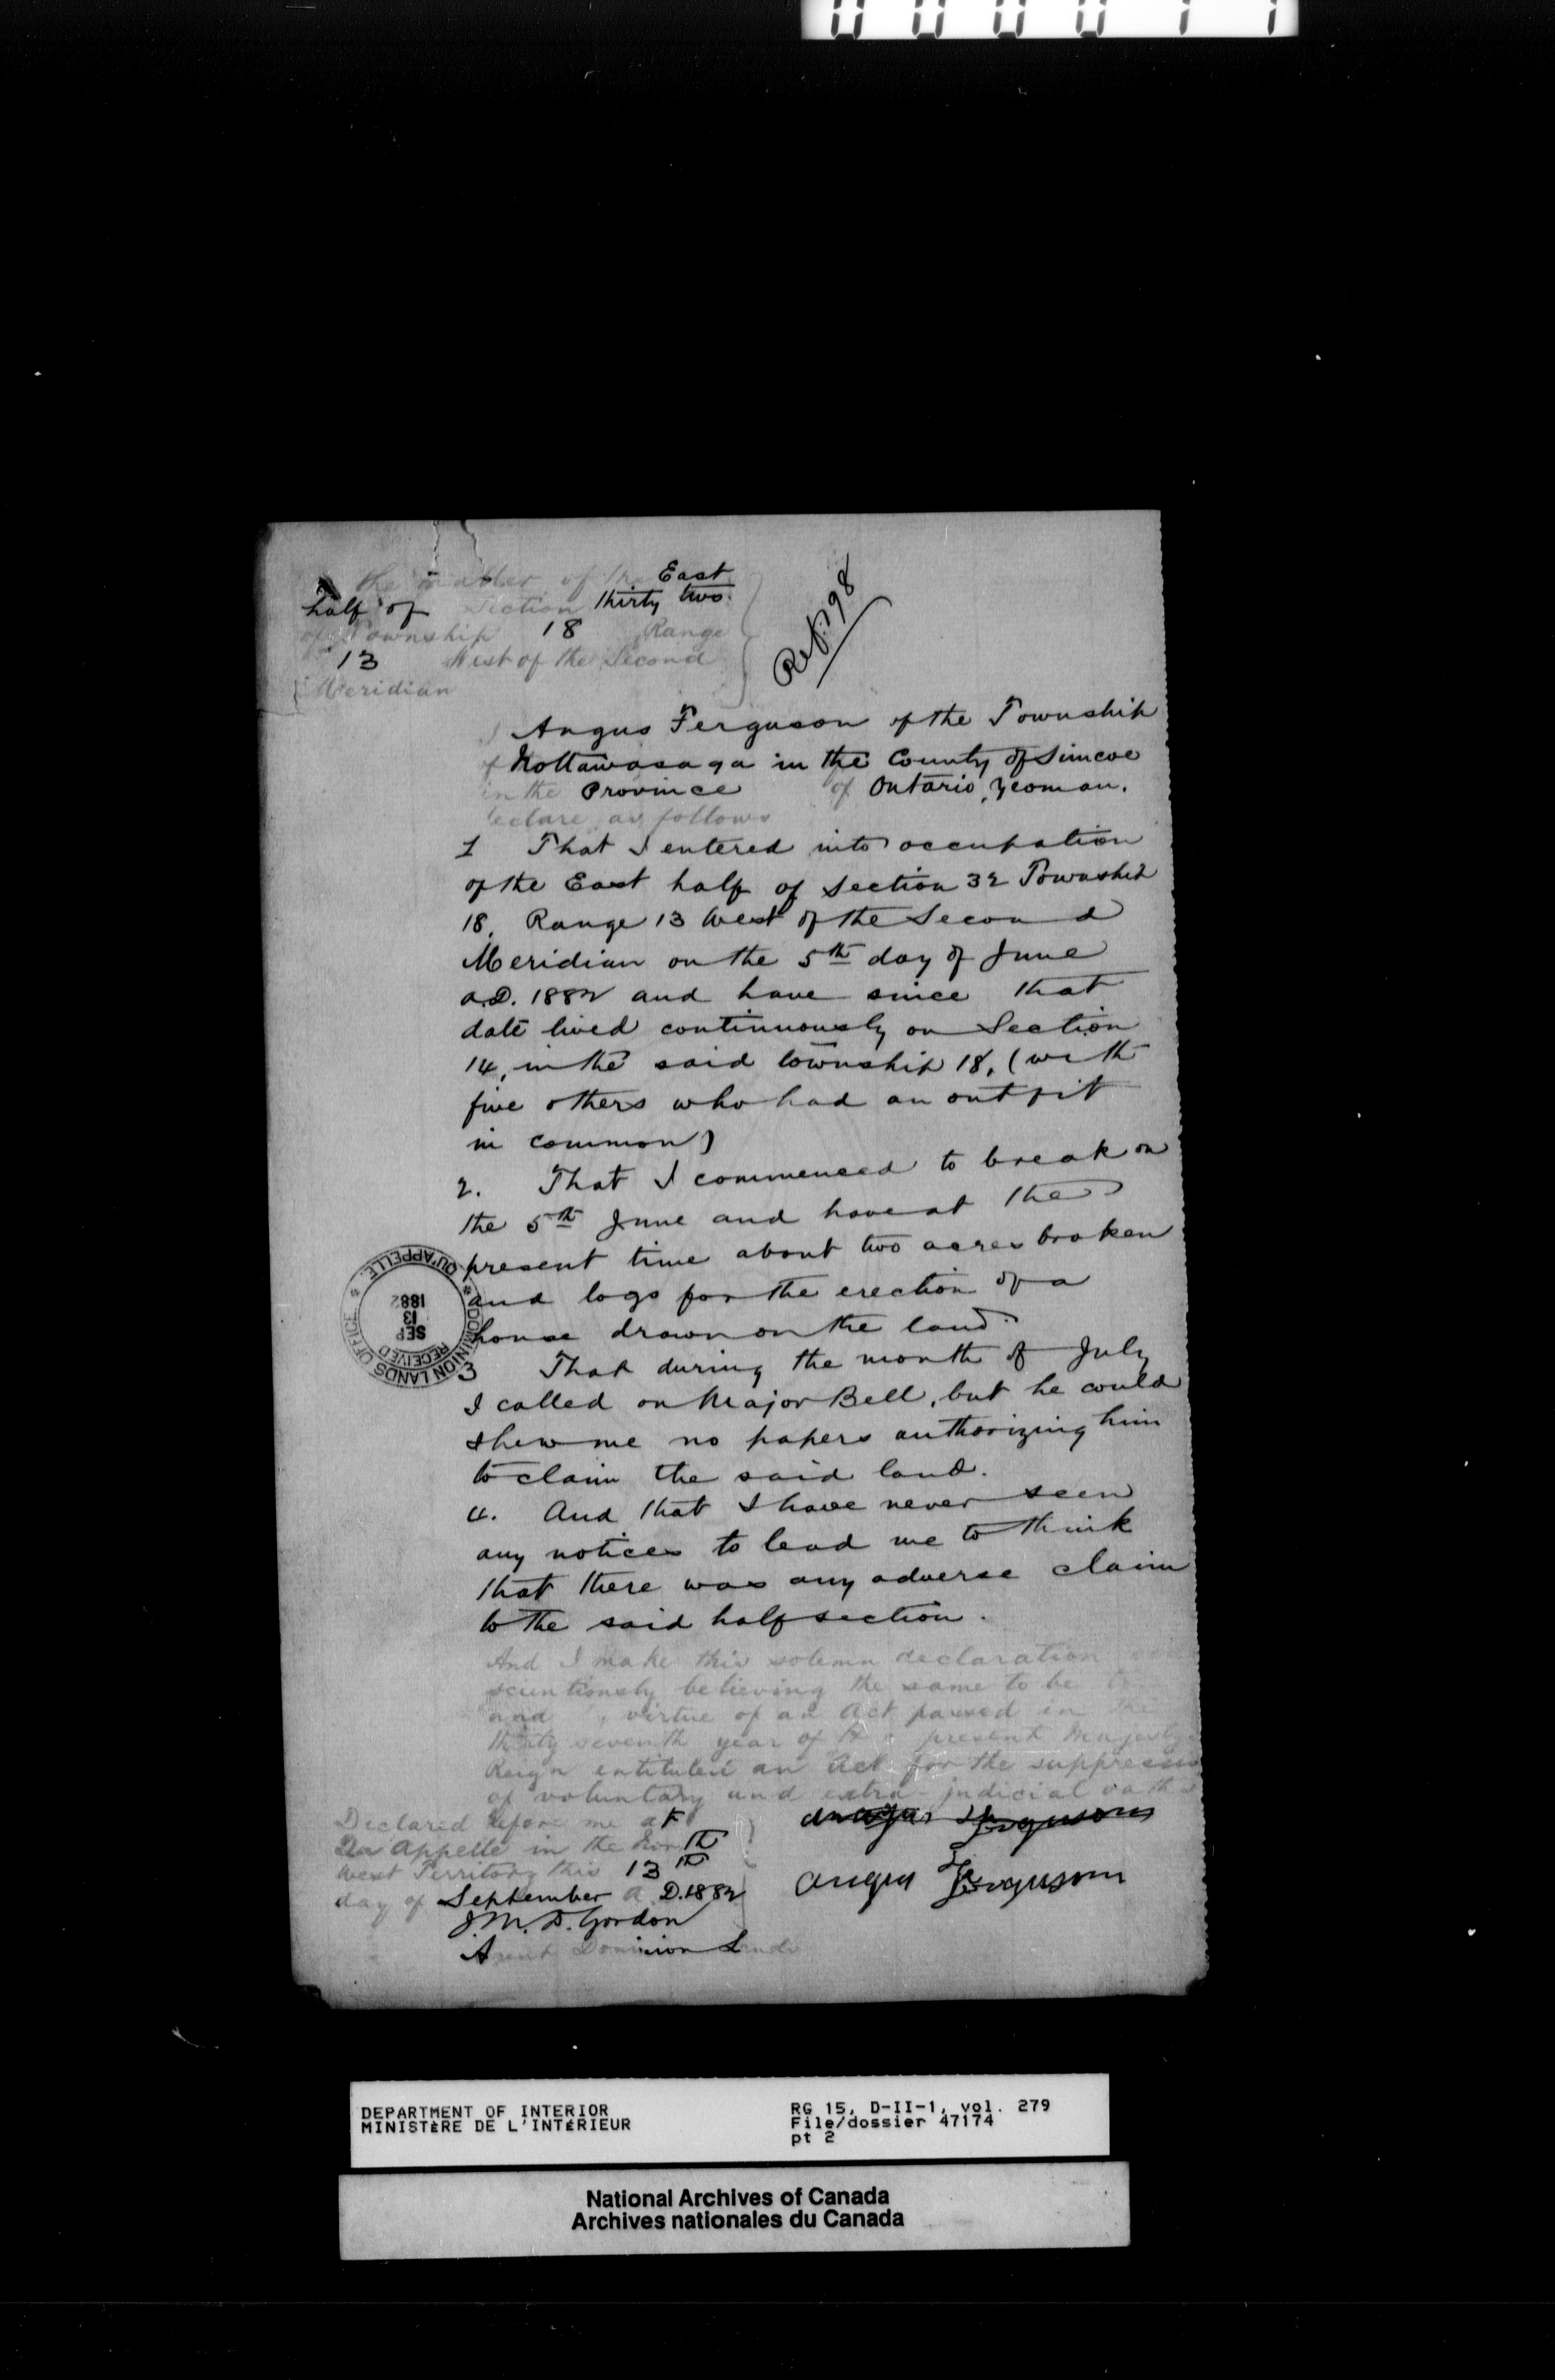 In the matter of the East
half of Section thirty two
of Township 18 Range
13 West of the Second
Meridian
Ref 98
I Angus Ferguson of the Township
of Nottawasaga in the County of Simcoe
in the Province of Ontario, yeoman.
declare as follows
1 That I entered into occupation
of the East half of Section 32 Township
18, Range 13 West of the Second
Meridian on the 5th day of June
A.D. 1882 and have since that
date lived continuously on Section
14, in the said township 18, (with
five others who had an outfit
in common)
2. That I commenced to break on
the 5th June and have at the
present time about two acres broken
and logs for the erection of a
house drawn on the land.
3 That during the month of July
I called on Major Bell, but he could
shew me no papers authorizing him
to claim the said land.
4. And that I have never seen
any notices to lead me to think
that there was any adverse claim
to the said half section.
And I make this solemn declaration con
scientiously believing the same to be
and virtue of an Act passed in the
thirty seventh year of Her present Majesty
Reign entituled an Act for the suppression
of voluntary and extra-judicial oaths
Declared before me at
Qu Appelle in the North
West Territory this 13th
day of September A.D. 1882
J. M. D. Gordon
Agent Dominion Lands
Angus Ferguson
Angus Ferguson
DOMINION LANDS OFFICE
QU'APPELLE
RECEIVED
SEP
13
1882
DEPARTMENT OF INTERIOR
MINISTÈRE DE L'INTÉRIEUR
RG 15, D-II-1, vol. 279
File/dossier 47174
pt 2
National Archives of Canada
Archives nationales du Canada